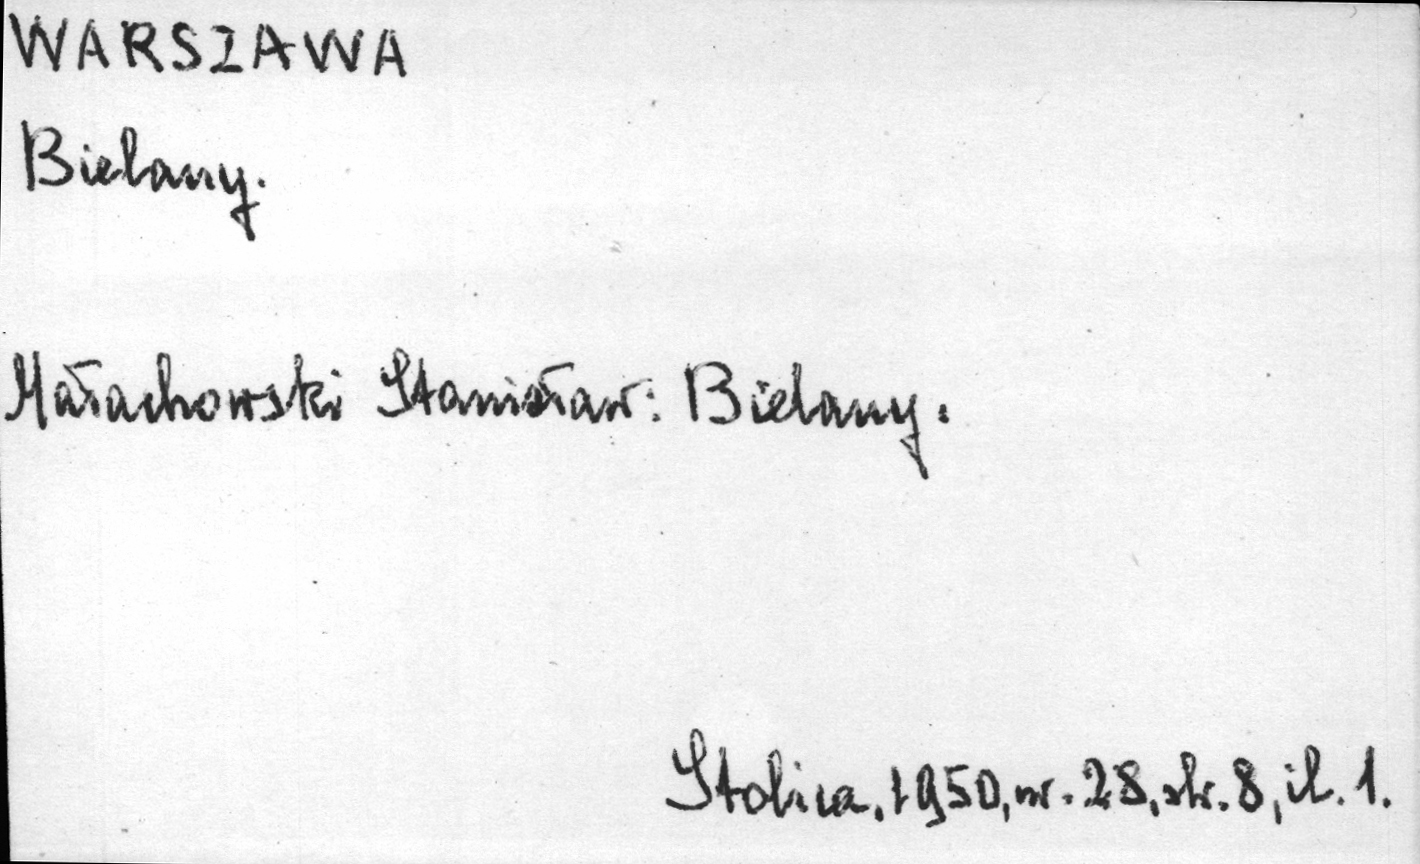 WARSZAWA
Bielany.
Małachowski Stanisław: Bielany.
Stolica, 1950, nr. 28, str. 8, il. 1.